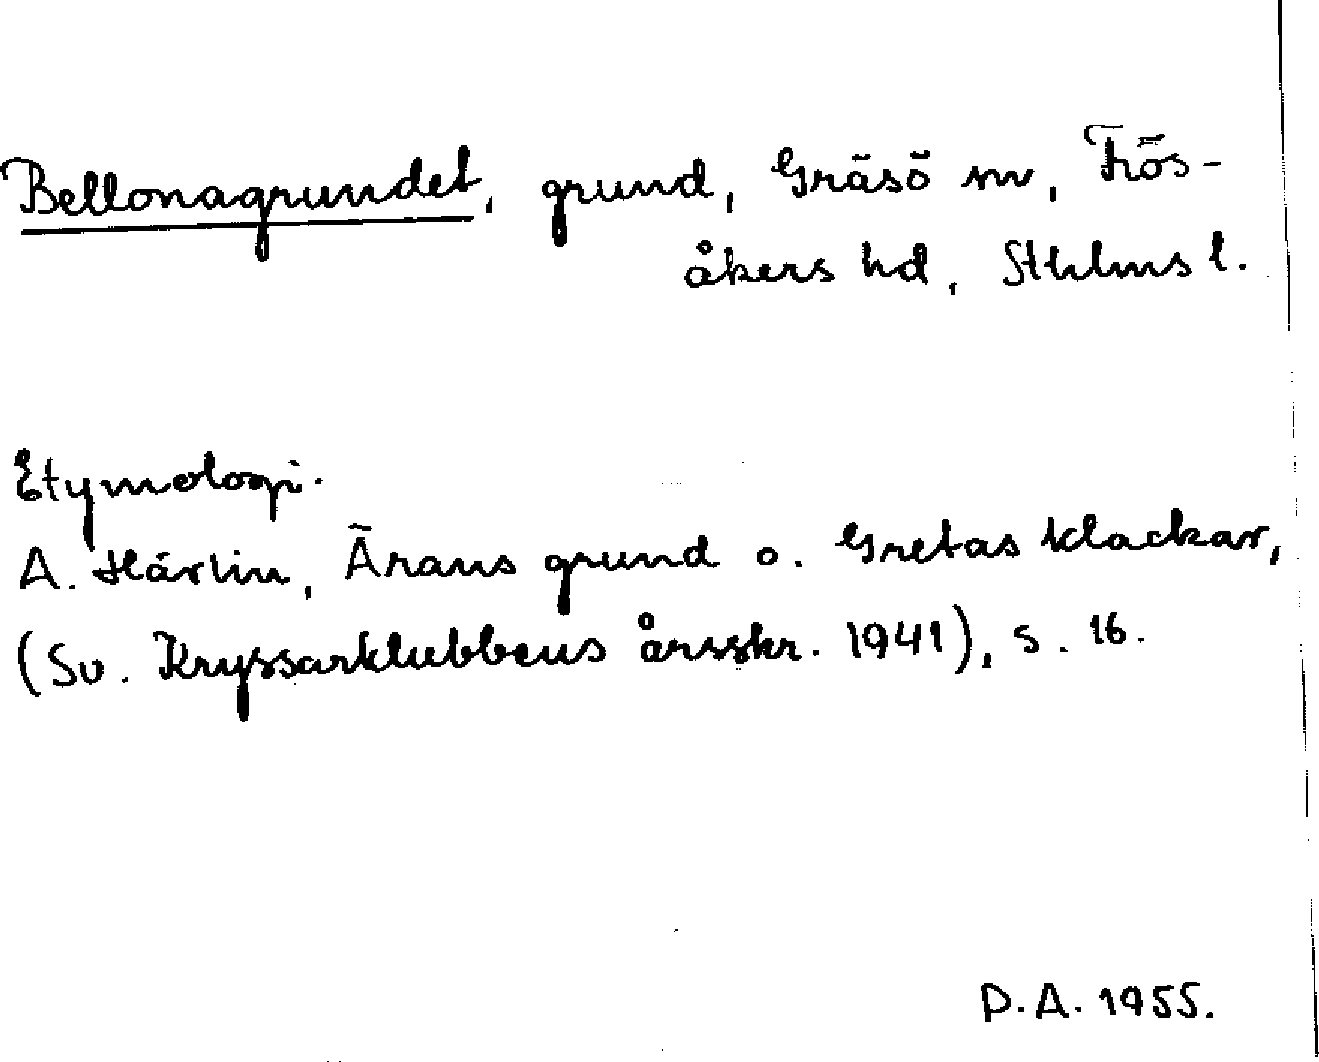 Bellonagrundet, grund, Gräsö sn, Frös-
åkers hd, Sthlms l.
Etymologi.
A. Härlin, Ärans grund o. Gretas klackar,
(Sv. Kryssarklubbens årsskr. 1941), s. 16.
D.A. 1955.